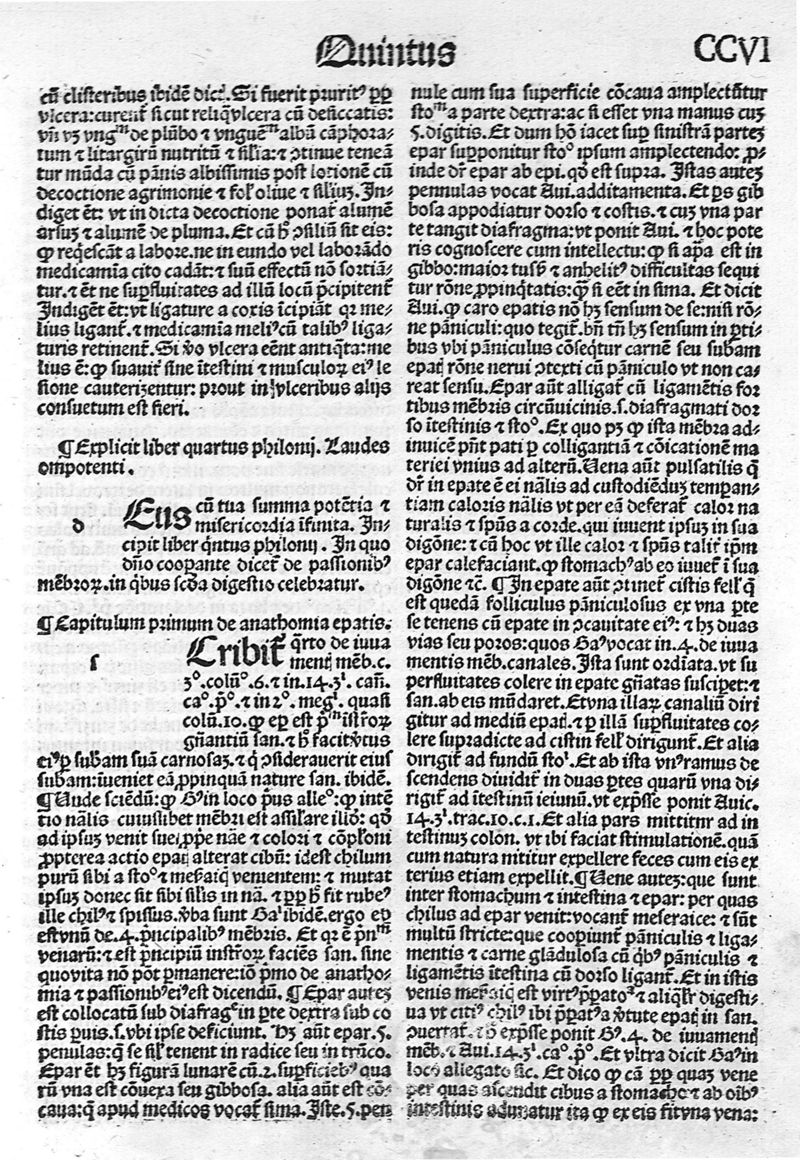 Quintus
CCVI
cū clisteribus ibidē dicť. Si fuerit prurit⁹ ꝓp
vlcera:curenť sicut reliq̄ vlcera cū desiccatis:
vñ vȝ vngᵐ de plūbo ⁊ vnguēᵐ albū cāphora-
tum ⁊ litargirū nutritū ⁊ silia: ⁊ ↄtinue teneā
tur mūda cū pānis albissimis post lotionē cū
decoctione agrimonie ⁊ fol̕ oliue ⁊ siliuȝ. In-
diget ēt: vt in dicta decoctione ponať alumē
arsuȝ ⁊ alumē de pluma. Et cū h̕ ↄsiliū sit eis:
ꝙ reqēscāt a labore. ne in eundo vel laborādo
medicamīa cito cadāt: ⁊ suū effectū nō sortiā-
tur. ⁊ ēt ne suꝑfluitates ad illū locū p̄cipitenť
Indigēt ēt: vt ligature a coxis īcipiāt qꝛ me-
lius liganť. ⁊ medicamīa meli⁹ cū talib⁹ liga-
turis retinenť. Si v̄o vlcera eēnt antiq̄ta: me
lius ē: ꝙ suauiť sine ītestini ⁊ musculoꝝ ei⁹ le
sione cauterizentur: prout in vlceribus alijs
consuetum est fieri.
¶ Explicit liber quartus philonij. Laudes
ompotenti.
d
Eus cū tua summa potētia ⁊
misericordia īfinita. In-
cipit liber q̄ntus philonij. In quo
dn̄o cooꝑante diceť de passionib⁹
mēbroꝝ. in q̄bus scd̄a digestio celebratur.
¶ Capitulum primum de anathomia epatis.
s
Cribiť q̄rto de iuua
mentꝭ mēb. c.
3º. colūº. 6. ⁊ in. 14. 3ⁱ. cañ.
caº. p̄º. ⁊ in 2º. megⁱ. quasi
colū. 10. ꝙ eꝑ est pⁿ īstr̄oꝝ
gn̄antiū san. ⁊ h̕ facit v̄tus
ei⁹ ꝑ subam suā carnosaȝ. ⁊ q̄ ↄsiderauerit eius
subam: īueniet eā ꝓpinquā nature san. ibidē.
¶ Unde sciēdū: ꝙ G⁹ in loco p̄us alleº: ꝙ intē
tio nālis cuiuslibet mēbri est assil̕are illō: qd̕
ad ipsuȝ venit suei ꝓp̄e nāe ⁊ colori ⁊ cōpl̕oni
ꝓpterea actio epatꝭ alterat cibū: idest chilum
purū sibi a stoº ⁊ mes̕aicꝭ venientem: ⁊ mutat
ipsuȝ donec sit sibi silis in nā. ⁊ ꝓp h̕ fit rube⁹
ille chil⁹ ⁊ spissus. v̄ba sunt Gaⁱ ibidē. ergo eꝑ
est vnū de. 4. p̄ncipalib⁹ mēbris. Et qꝛ ē p̄nᵐ
venarū: ⁊ est p̄ncipiū instr̄oꝝ faciēs san. sine
quo vita nō pōt ꝑmanere: iō p̄mo de anatho-
mia ⁊ passionib⁹ ei⁹ est dicendū. ¶ Epar auteȝ
est collocatū sub diafrag̕ in ꝑte dextra sub co
stis ꝑuis. s. vbi ipse deficiunt. Hȝ aūt epar. 5.
penulas: q̄ se sil̕ tenent in radice seu in trūco.
Epar ēt hȝ figurā lunarē cū. 2. suꝑficieb⁹ qua
rū vna est cōuexa seu gibbosa. alia aūt est cō-
caua: q̄ apud medicos vocať sima. Iste. 5. pen
nule cum sua superficie cōcaua amplectūtur
stoᵐ a parte dextra: ac si esset vna manus cuȝ
5. digitis. Et dum hō iacet suꝑ sinistrā parteȝ
epar suꝑponitur stoº ipsum amplectendo: ꝓ-
inde dr̄ epar ab epi. qd̕ est supra. Istas auteȝ
pennulas vocat Aui. additamenta. Et ꝑs gib
bosa appodiatur dorso ⁊ costis. ⁊ cuȝ vna par
te tangit diafragma: vt ponit Aui. ⁊ hoc pote
ris cognoscere cum intellectu: ꝙ si ap̄a est in
gibbo: maior tuss⁹ ⁊ anhelit⁹ difficultas sequi
tur rōne ꝓpinq̄tatis: q̄ si eēt in sima. Et dicit
Aui. ꝙ caro epatis nō hȝ sensum de se: nisi rō-
ne pāniculi: quo tegiť. bn̄ tn̄ hȝ sensum in ꝑti-
bus vbi pāniculus cōseq̄tur carnē seu subam
epatꝭ rōne nerui ↄtexti cū pāniculo vt non ca-
reat sensu. Epar aūt alligať cū ligamētis for
tibus mēbris circūuicinis. s. diafragmati dor
so ītestinis ⁊ stoº. Ex quo pȝ ꝙ ista mēbra ad-
inuicē pn̄t pati ꝑ colligantiā ⁊ cōicationē ma
teriei vnius ad alterū. Uena aūt pulsatilis q̄
dr̄ in epate ē ei nālis ad custodiēduȝ temꝑan-
tiam caloris nālis vt ꝑ eā deferať calor na
turalis ⁊ spūs a corde. qui iuuent ipsuȝ in sua
digōne: ⁊ cū hoc vt ille calor ⁊ spūs taliť ip̄m
epar calefaciant. ꝙ stomach⁹ ab eo iuueť ī sua
digōne ⁊c̄. ¶ In epate aūt ↄtineť cistis fell̕ q̄
est quedā folliculus pāniculosus ex vna ꝑte
se tenens cū epate in ↄcauitate ei⁹: ⁊ hȝ duas
vias seu poros: quos Ga⁹ vocat in. 4. de iuua
mentis mēb. canales. Ista sunt ordīata. vt su
perfluitates colere in epate gn̄atas suscipet: ⁊
san. ab eis mūdaret. Et vna illaꝝ canaliū diri
gitur ad mediū epatꝭ. ⁊ ꝑ illā suꝑfluitates co-
lere supradicte ad cistin fell̕ dirigunť. Et alia
dirigiť ad fundū stoⁱ. Et ab ista vn⁹ ramus de
scendens diuidiť in duas ꝑtes quarū vna di-
rigiť ad ītestinū ieiunū. vt exp̄sse ponit Auic.
14. 3ⁱ. trac. 10. c. 1. Et alia pars mittitur ad in
testinuȝ colon. vt ibi faciat stimulationē. quā
cum natura nititur expellere feces cum eis ex
terius etiam expellit. ¶ Uene auteȝ: que sunt
inter stomachum ⁊ intestina ⁊ epar: per quas
chilus ad epar venit: vocanť meseraice: ⁊ sūt
multū stricte: que cooꝑiunť pāniculis ⁊ liga-
mentis ⁊ carne glādulosa cū q̄b⁹ pāniculis ⁊
ligamētis ītestina cū dorso liganť. Et in istis
venis mes̕aicꝭ est virt⁹ p̄paratoª ⁊ aliql̕r digesti-
ua vt citi⁹ chil⁹ ibi p̄paťt⁹ a v̄tute epatꝭ in san.
ↄuertať. ⁊ h̕ exp̄sse ponit G⁹. 4. de iuuamentꝭ
mēb. ⁊ Aui. 14. 3ⁱ. caº. p̄º. Et vltra dicit Ga⁹ in
loco allegato sic. Et dico ꝙ cā ꝓp quaȝ vene
per quas ascendit cibus a stomacho ⁊ ab oīb⁹
intestinis adunatur ita ꝙ ex eis fit vna vena: